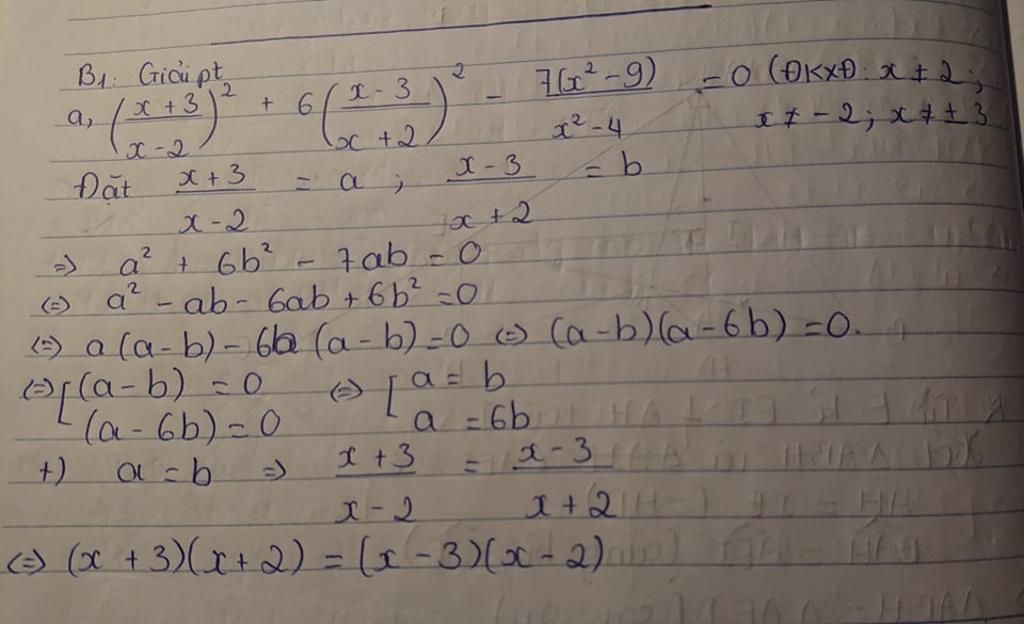 B1: Giải pt
a, (x+3/x-2)² + 6(x-3/x+2)² - 7(x²-9)/x²-4 = 0 (ĐKXĐ: x ≠ 2;
x ≠ -2; x ≠ ± 3
Đặt x+3/x-2 = a ; x-3/x+2 = b
=> a² + 6b² - 7ab = 0
<=> a² - ab - 6ab + 6b² = 0
<=> a(a-b) - 6b(a-b) = 0 <=> (a-b)(a-6b) = 0.
<=> [(a-b) = 0 <=> [a = b
(a-6b) = 0 a = 6b
+) a = b => x+3/x-2 = x-3/x+2
<=> (x+3)(x+2) = (x-3)(x-2)